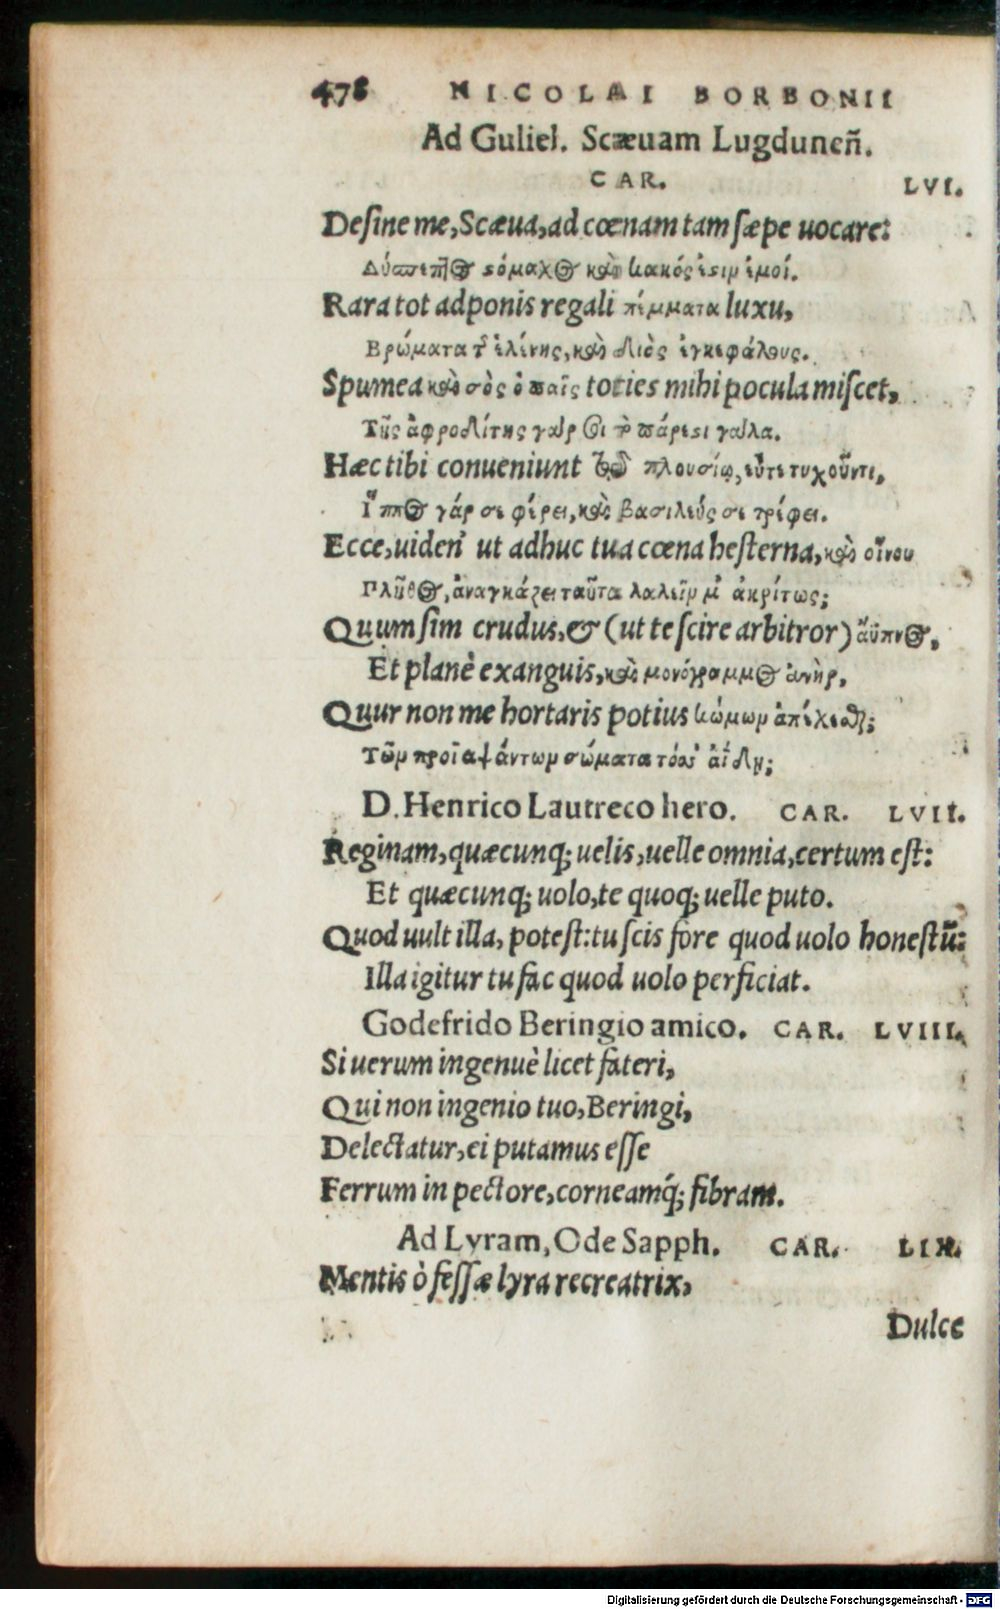 478 NICOLAI BORBONII
Ad Guliel. Scæuam Lugduneñ.
CAR. LVI.
Desine me, Scæua, ad cœnam tam sæpe uocare:
Δύσπεπτος στόμαχος καὶ κακός ἐστιν ἐμοί.
Rara tot adponis regali πέμματα luxu,
Βρώματα τῆς ἑλένης, καὶ διὸς ἐγκεφάλους.
Spumea καὶ σὸς ὁ παῖς toties mihi pocula miscet,
Τῆς ἀφροδίτης γὰρ σοι τὸ πάρεστι γάλα.
Hæc tibi conueniunt τῷ πλουσίῳ, εὖτε τυχοῦντι,
Ἵππος γάρ σε φέρει, καὶ βασιλεύς σε τρέφει.
Ecce, uiden' ut adhuc tua cœna hesterna, καὶ οἴνου
Πλῆθος, ἀναγκάζει ταῦτα λαλεῖν μ' ἀκρίτως;
Quum sim crudus, & (ut te scire arbitror) ἄϋπνος,
Et planè exanguis, καὶ μονόγραμμος ἀνὴρ,
Quur non me hortaris potius κώμων ἀπέχεσθαι;
Τῶν προϊαψάντων σώματα τόσσ' ἀΐδῃ;
D. Henrico Lautreco hero. CAR. LVII.
Reginam, quæcunq; uelis, uelle omnia, certum est:
Et quæcunq; uolo, te quoq; uelle puto.
Quod uult illa, potest: tu scis fore quod uolo honestũ:
Illa igitur tu fac quod uolo perficiat.
Godefrido Beringio amico. CAR. LVIII.
Si uerum ingenuè licet fateri,
Qui non ingenio tuo, Beringi,
Delectatur, ei putamus esse
Ferrum in pectore, corneamq́; fibram.
Ad Lyram, Ode Sapph. CAR. LIX.
Mentis ò fessæ lyra recreatrix,
Dulce
Digitalisierung gefördert durch die Deutsche Forschungsgemeinschaft - DFG